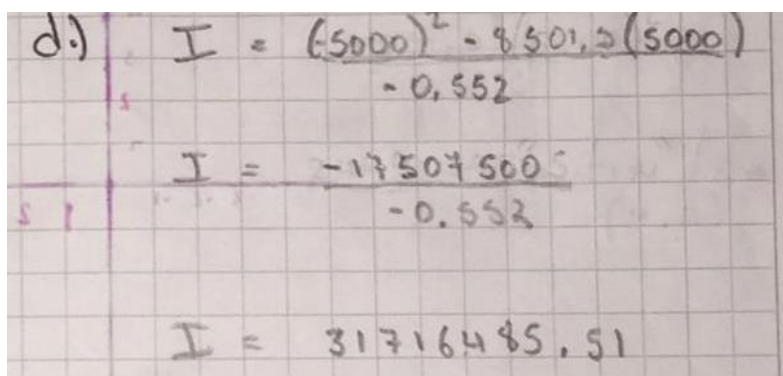 d.) I = (-5000)² - 8501,5(5000)
- 0,552
I = -17507500
- 0.552
I = 31716485.51